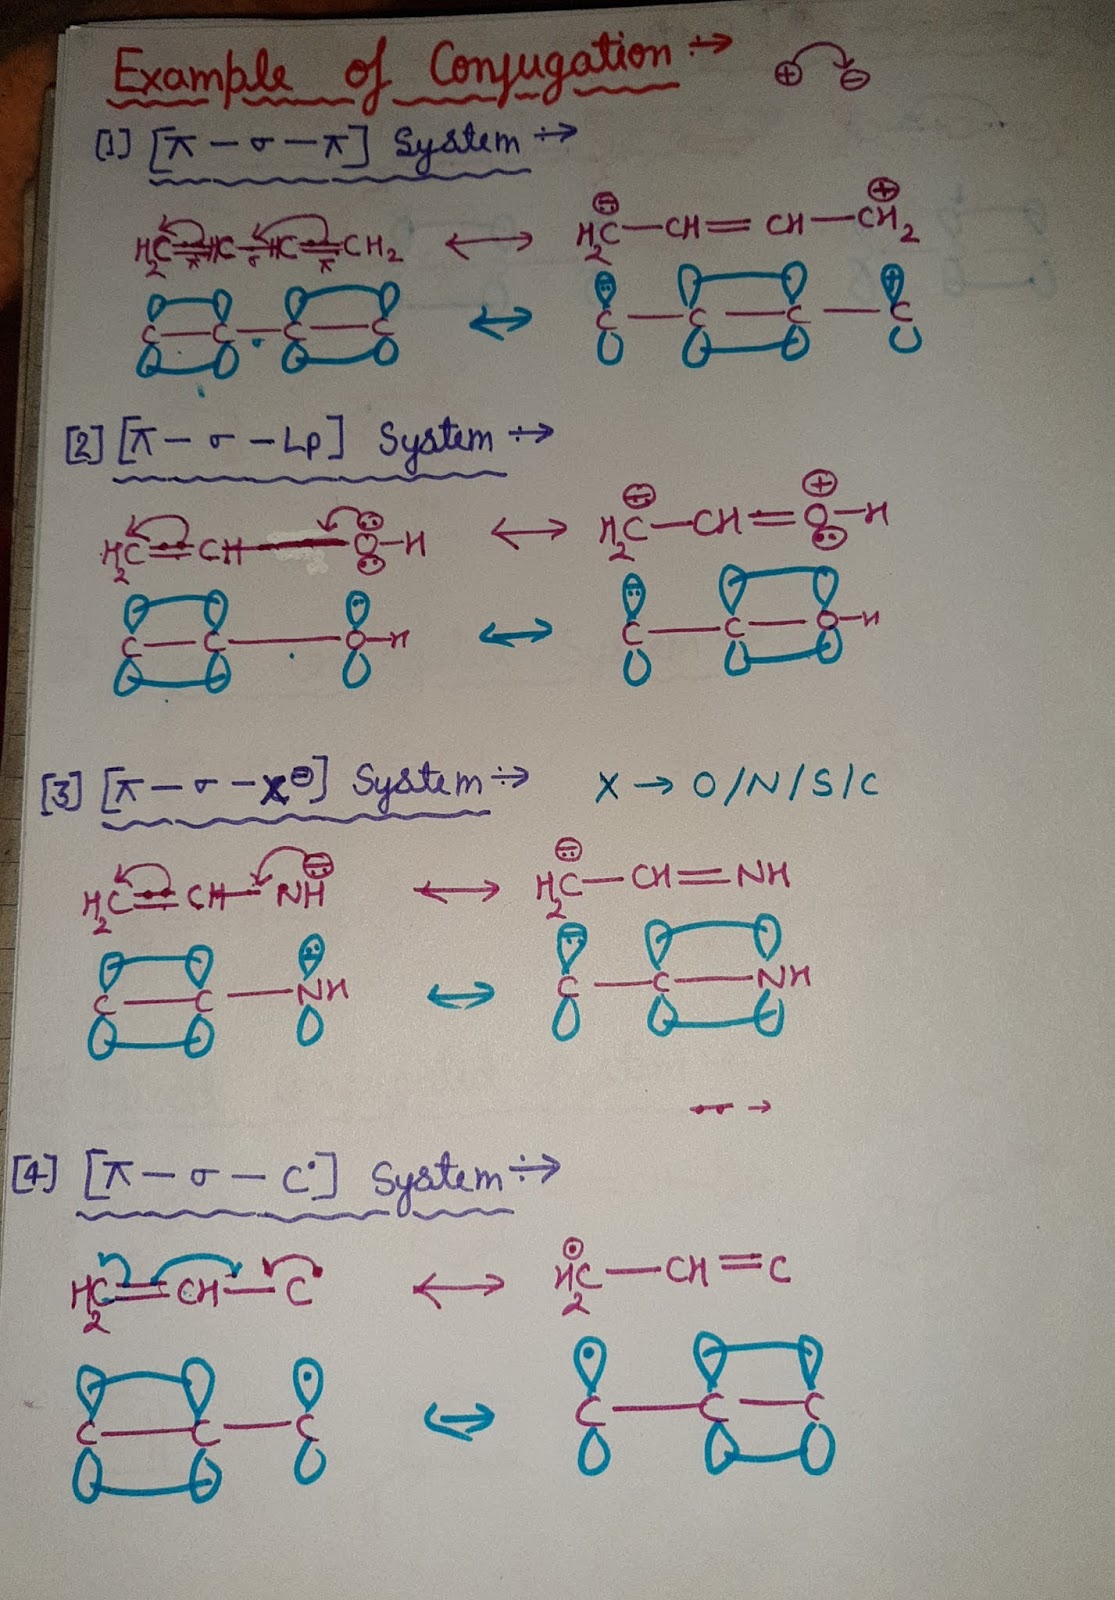 Example of Conjugation ÷→ ⊕ ⊖
[1] [π – σ – π] System ÷→
H₂C=HC–HC=CH₂ ↔ H₂C–CH=CH–CH₂
π σ π
⊖ ⊕
C–C–C–C ↔ C–C–C–C
⊕
[2] [π – σ – Lp] System ÷→
H₂C=CH–O–H ↔ H₂C–CH=O–H
⊖ ⊕
C–C–O–H ↔ C–C–O–H
[3] [π – σ – X⊖] System ÷→ X → O/N/S/C
H₂C=CH–NH ↔ H₂C–CH=NH
⊖ ⊖
C–C–NH ↔ C–C–NH
→
[4] [π – σ – C•] System ÷→
H₂C=CH–C• ↔ H₂C–CH=C
C–C–C ↔ C–C–C